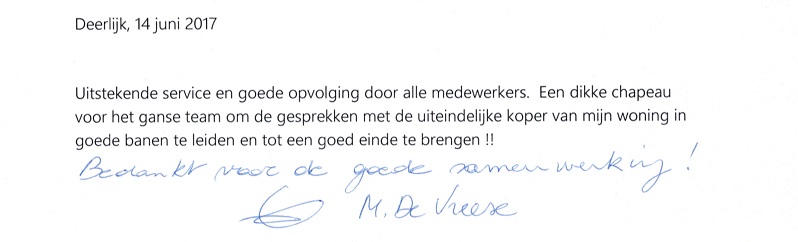 Deerlijk, 14 juni 2017
Uitstekende service en goede opvolging door alle medewerkers. Een dikke chapeau
voor het ganse team om de gesprekken met de uiteindelijke koper van mijn woning in
goede banen te leiden en tot een goed einde te brengen !!
Bedankt voor de goede samenwerking!
M. De Vreese